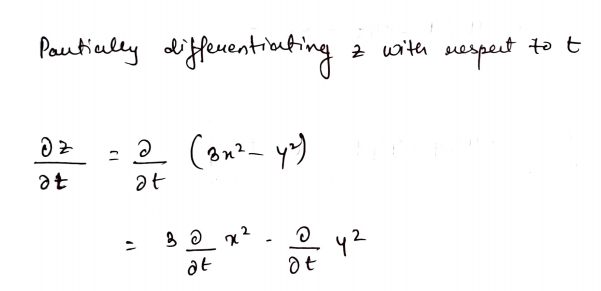 Partially differentiating z with respect to t
∂z/∂t = ∂/∂t (3x² - y²)
= 3 ∂/∂t x² - ∂/∂t y²